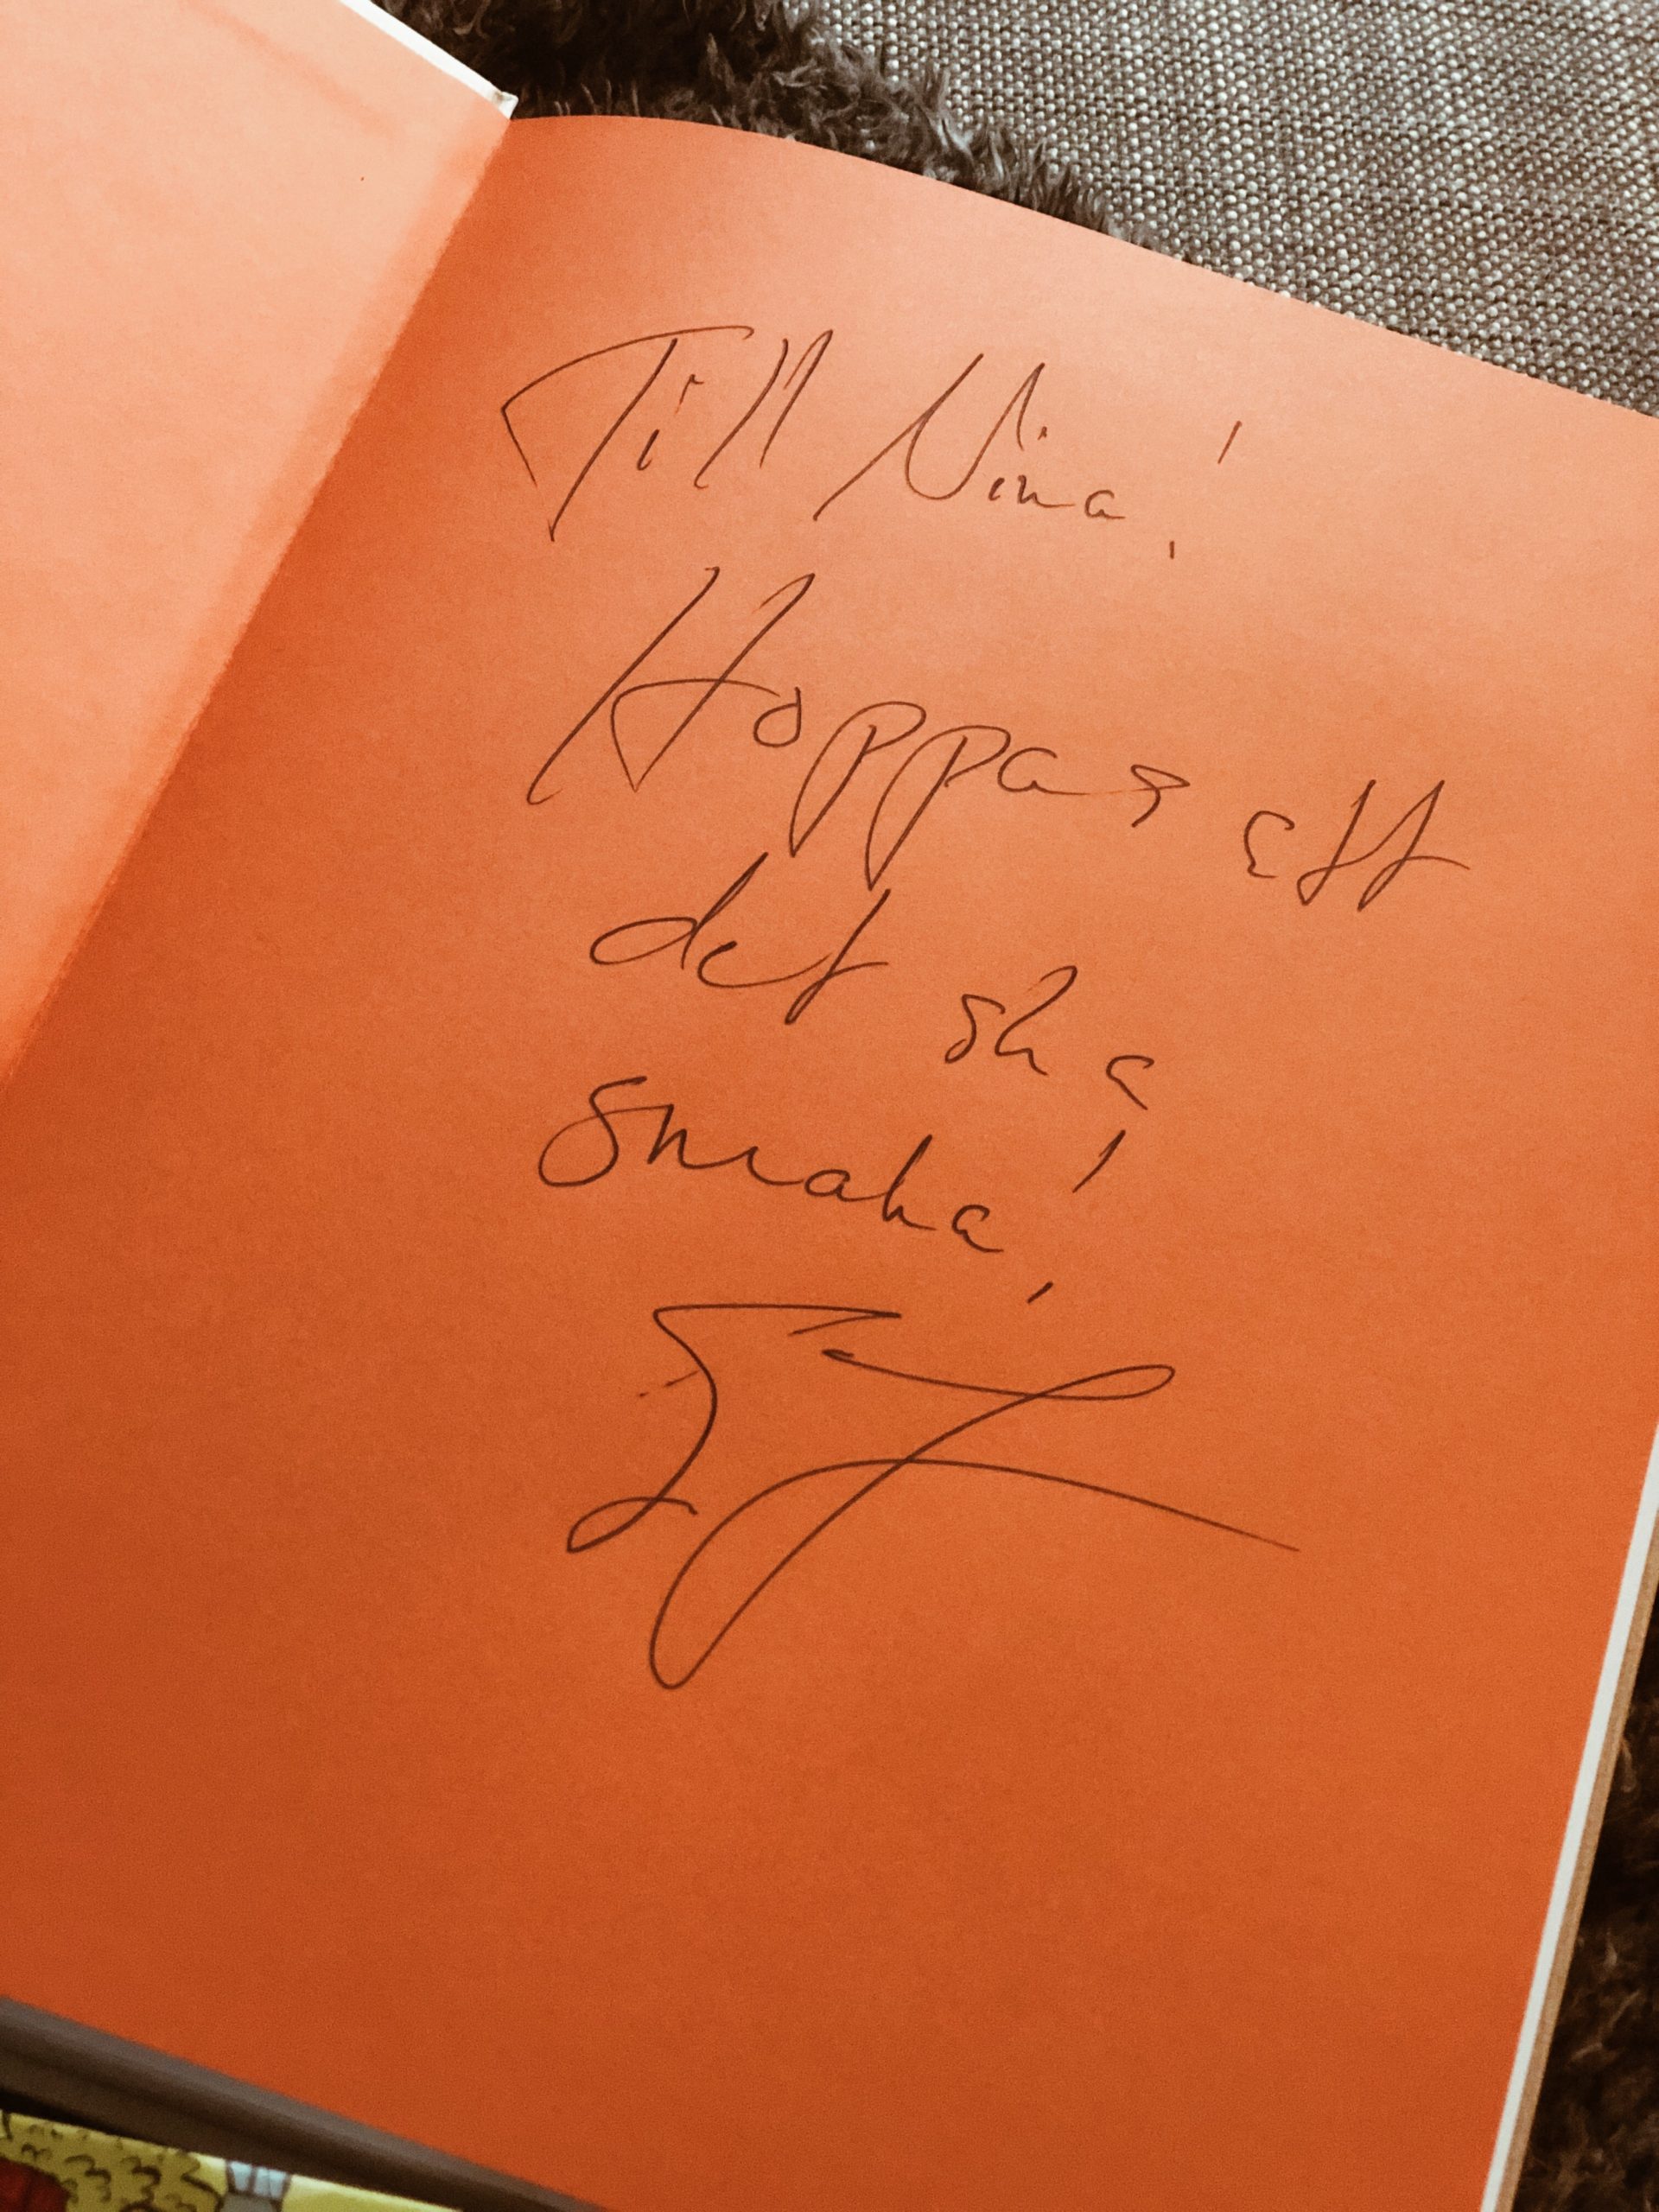 Till Nina!
Hoppas att
det ska
smaka!